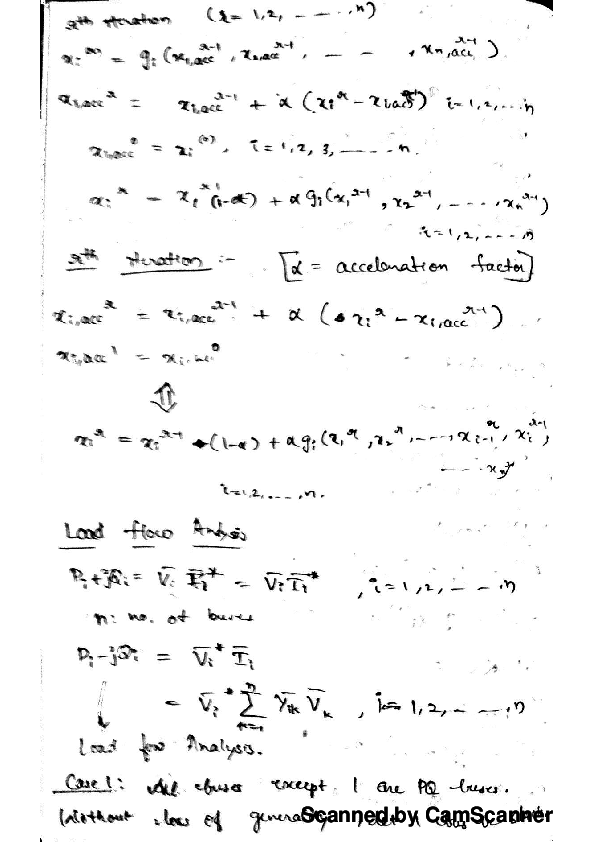 rth iteration (i = 1,2, - - - -, n)
xᵢ⁽ʳ⁾ = gᵢ (x₁,acc^r-1, x₂,acc^r-1, - - -, xₙ,acc^r-1)
xᵢ,acc^r = xᵢ,acc^r-1 + α (xᵢ^r - xᵢ,acc^r-1) i = 1,2, ... n
xᵢ,acc^0 = xᵢ^(0), i = 1, 2, 3, - - - - n.
xᵢ^r = xᵢ^r-1 (1-α) + α gᵢ (x₁^r-1, x₂^r-1, - - - -, xₙ^r-1)
i = 1,2, - - - -, n
rth iteration :- [α = acceleration factor]
xᵢ,acc^r = xᵢ,acc^r-1 + α (xᵢ^r - xᵢ,acc^r-1)
xᵢ,acc =
⇕
xᵢ^r = xᵢ^r-1 (1-α) + α gᵢ (x₁^r, x₂^r, - - - -, xᵢ₋₁^r, xᵢ^r-1,
- - - - xₙ
i = 1,2, - - - -, n.
Load flow Analysis
Pᵢ + jQᵢ = V̄ᵢ Īᵢ* = V̄ᵢ Īᵢ*, i = 1, 2, - - -, n
n: no. of buses
Pᵢ - jQᵢ = V̄ᵢ* Īᵢ
= V̄ᵢ* Σ(k=1 to n) Ȳᵢₖ V̄ₖ, i = 1, 2, - - -, n
Load flow Analysis.
Case 1: All buses except 1 are PQ buses.
(Without loss of
Scanned by CamScanner